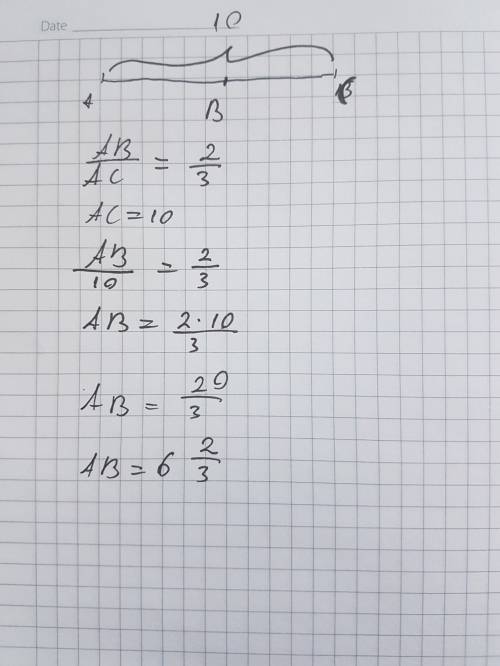 Date
10
A B C
AB/AC = 2/3
AC = 10
AB/10 = 2/3
AB = 2·10/3
AB = 20/3
AB = 6 2/3